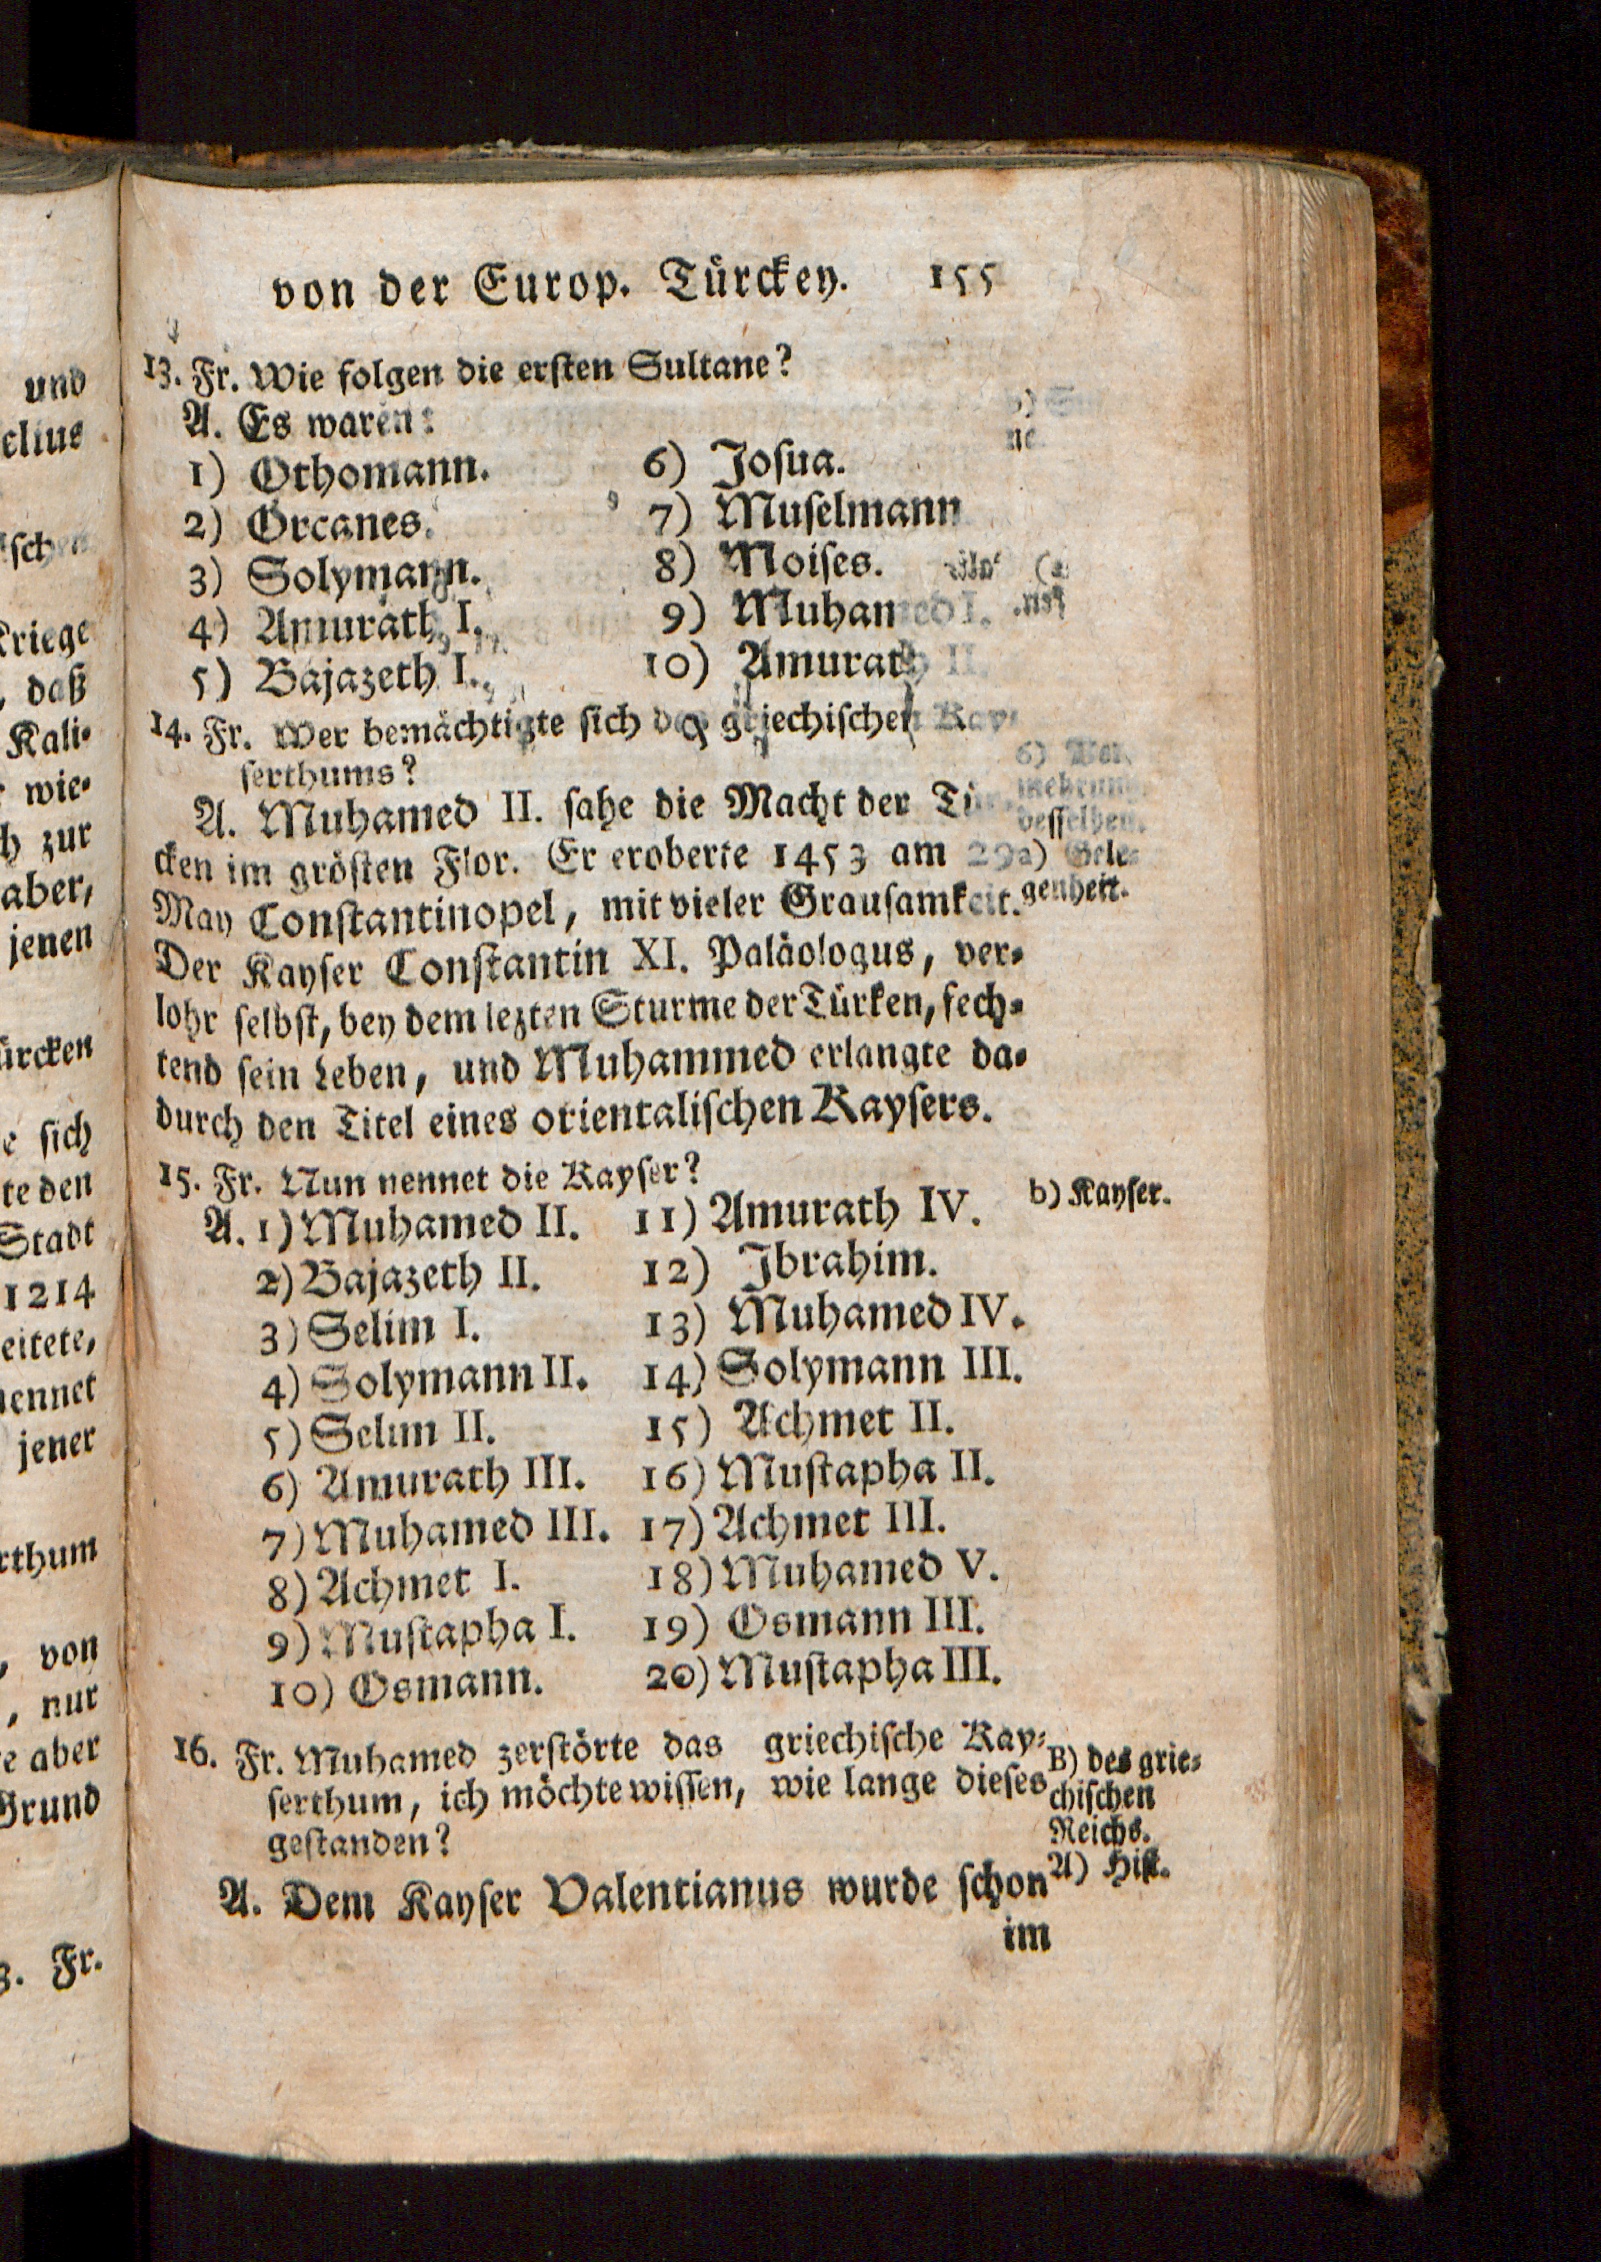 von der Europ. Türckey. 155
13. Fr. Wie folgen die ersten Sultane?
A. Es waren:
1) Othomann.
2) Orcanes.
3) Solymann.
4) Amurath I.
5) Bajazeth I.
6) Josua.
7) Muselmann
8) Moises.
9) Muhamed I.
10) Amurath II.
14. Fr. Wer bemächtigte sich des griechischen Kay-
serthums?
6) Ver-
mehrung
desselben.
A. Muhamed II. sahe die Macht der Tür-
cken im grösten Flor. Er eroberte 1453 am 29
May Constantinopel, mit vieler Grausamkeit.
a) Gele-
genheit.
Der Kayser Constantin XI. Paläologus, ver-
lohr selbst, bey dem lezten Sturme der Türken, fech-
tend sein Leben, und Muhammed erlangte da-
durch den Titel eines orientalischen Kaysers.
15. Fr. Nun nennet die Kayser?
b) Kayser.
A. 1) Muhamed II.
2) Bajazeth II.
3) Selim I.
4) Solymann II.
5) Selim II.
6) Amurath III.
7) Muhamed III.
8) Achmet I.
9) Mustapha I.
10) Osmann.
11) Amurath IV.
12) Ibrahim.
13) Muhamed IV.
14) Solymann III.
15) Achmet II.
16) Mustapha II.
17) Achmet III.
18) Muhamed V.
19) Osmann III.
20) Mustapha III.
16. Fr. Muhamed zerstörte das griechische Kay-
serthum, ich möchte wissen, wie lange dieses
gestanden?
B) des grie-
chischen
Reichs.
A) Hist.
A. Dem Kayser Valentianus wurde schon
im
und
elius
Kriege
, daß
Kali-
wie-
zur
aber,
jenen
ürcken
sich
te den
Stadt
1214
eitete,
nennet
jener
rthum
, von
, nur
aber
Grund
3. Fr.